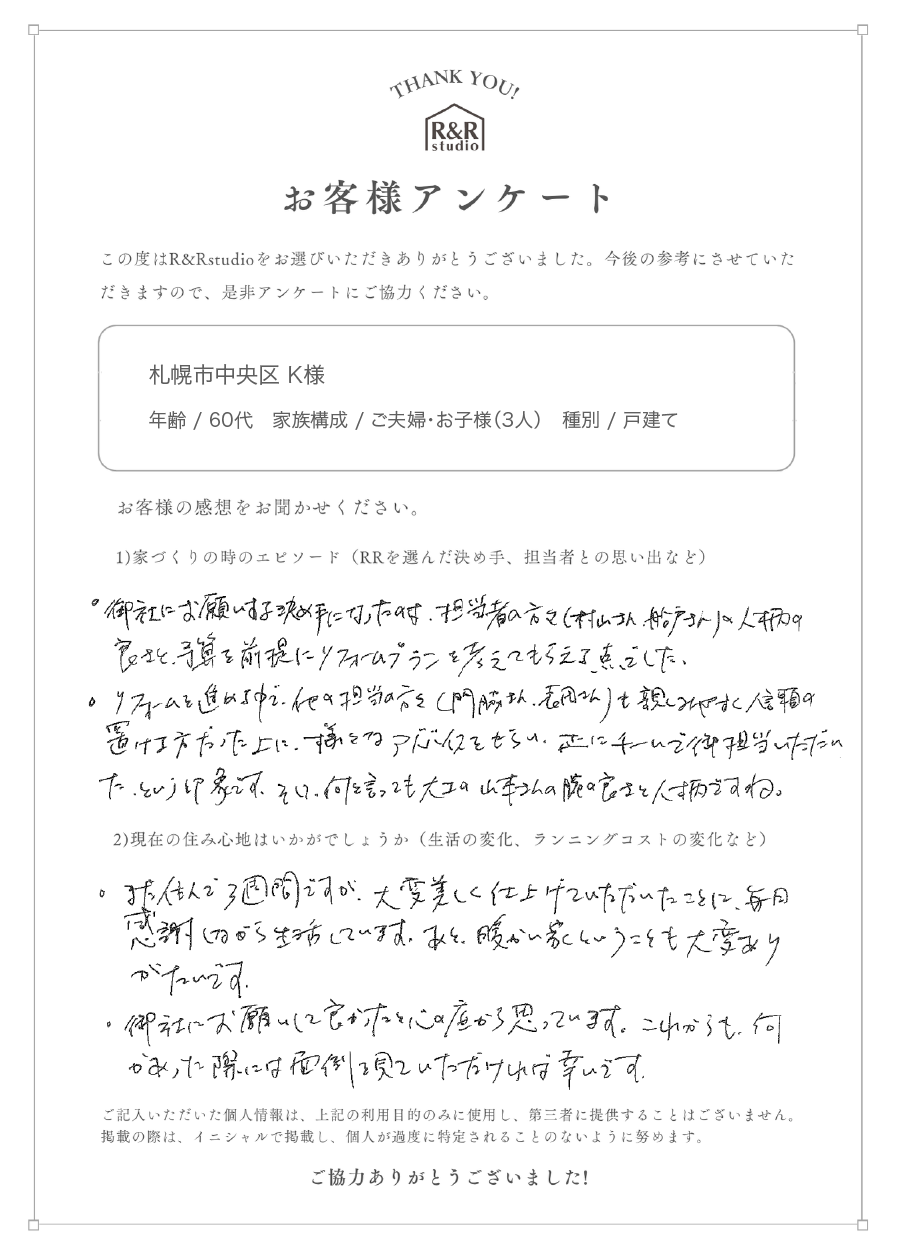 THANK YOU!
R&R
studio
お客様アンケート
この度はR&Rstudioをお選びいただきありがとうございました。今後の参考にさせていた
だきますので、是非アンケートにご協力ください。
札幌市中央区 K様
年齢 / 60代 家族構成 / ご夫婦・お子様(3人) 種別 / 戸建て
お客様の感想をお聞かせください。
1)家づくりの時のエピソード（RRを選んだ決め手、担当者との思い出など）
。御社にお願いする決め手になったのは、担当者の方々(村山さん、船戸さん)の人柄の
良さと、予算を前提にリフォームプランを考えてもらえる点でした。
。リフォームを進める中で、他の担当の方々(門脇さん、さん)も親しみやすく信頼の
置ける方だった上に、様々なアドバイスをもらい、正にチームで御担当いただい
た、という印象です。そして、何と言っても大工の山本さんの腕の良さと人柄ですね。
2)現在の住み心地はいかがでしょうか（生活の変化、ランニングコストの変化など）
。まだ住んで3週間ですが、大変美しく仕上げていただいたことに、毎日
感謝しながら生活しています。あと、暖かい家ということも大変あり
がたいです。
・御社にお願いして良かったと心の底から思っています。これからも、何
かあった際には面倒を見ていただければ幸いです。
ご記入いただいた個人情報は、上記の利用目的のみに使用し、第三者に提供することはございません。
掲載の際は、イニシャルで掲載し、個人が過度に特定されることのないように努めます。
ご協力ありがとうございました!